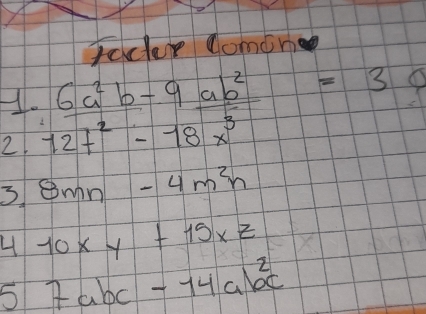 Factor Comón
1. 6a²b - 9 ab² = 3
2. 12x² - 18x³
3. 8mn - 4m²n
4 10xy + 15xz
5 7abc - 14ab²c